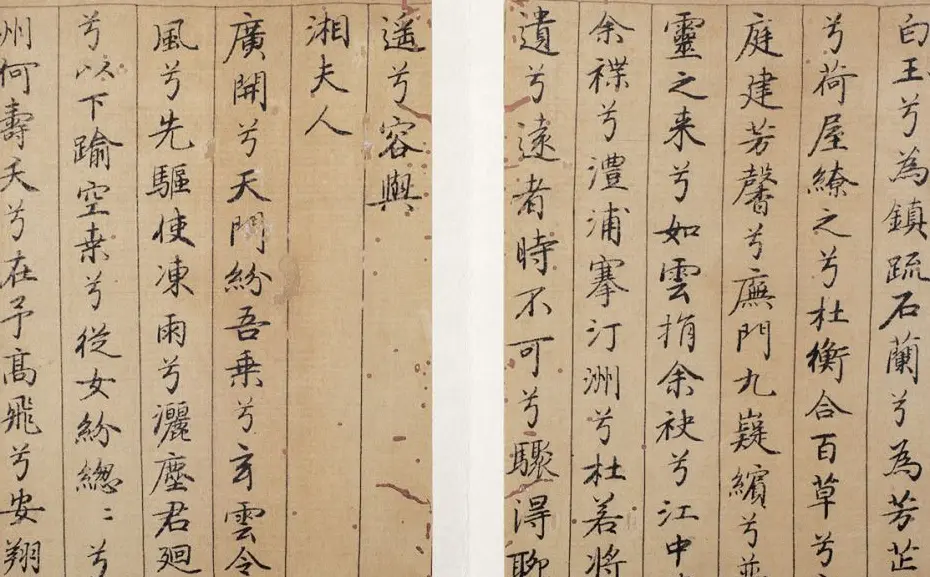 白玉兮為鎮疏石蘭兮為芳芷
兮荷屋繚之兮杜衡合百草兮
庭建芳馨兮廡門九嶷繽兮並
靈之来兮如雲捐余袂兮江中
余褋兮澧浦搴汀洲兮杜若将
遺兮遠者時不可兮驟得聊
遥兮容與
湘夫人
廣開兮天門紛吾乗兮玄雲令
風兮先驅使凍雨兮灑塵君廻
兮以下踰空桒兮從女紛緫〻兮
州何壽夭兮在予高飛兮安翔